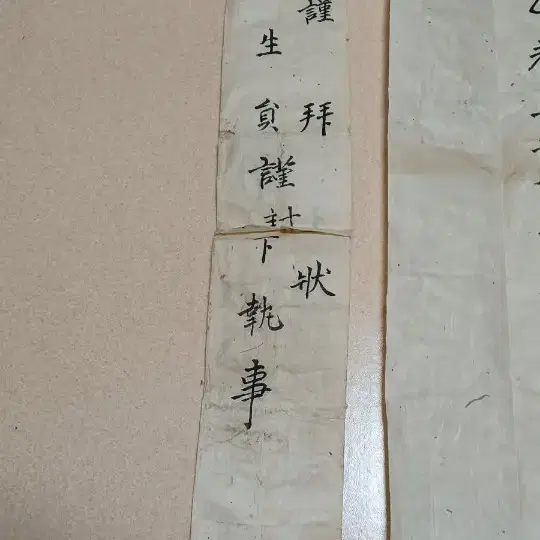 謹拜狀
生員謹封下執事